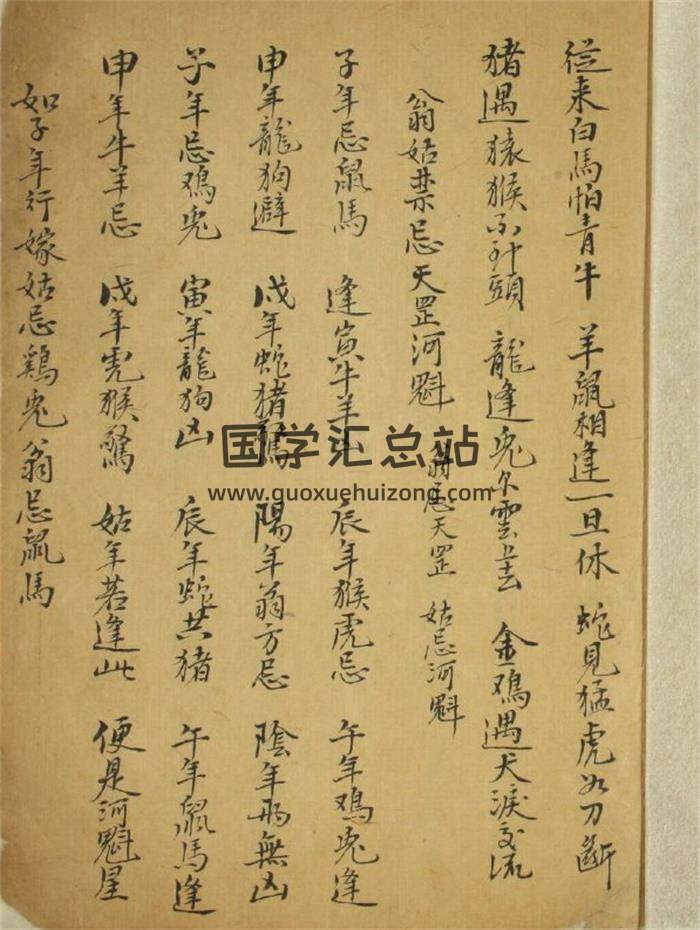 從来白馬怕青牛 羊鼠相逢一旦休 蛇見猛虎如刀斷
猪遇猿猴不到頭 龍逢兎尔雲是去 金鷄遇犬淚交流
翁姑禁忌天罡河魁 翁忌天罡 姑忌河魁
子年忌鼠馬 逢寅牛羊 辰年猴虎忌 午年鷄兎逢
申年龍狗避 戌年蛇猪驚 陽年翁方忌 陰年而無凶
子年忌鷄兎 寅年龍狗凶 辰年蛇共猪 午年鼠馬逢
申年牛羊忌 戌年虎猴驚 姑年若逢此 便是河魁星
如子年行嫁姑忌鷄兎翁忌鼠馬
国学汇总站
www.guoxuehuizong.com